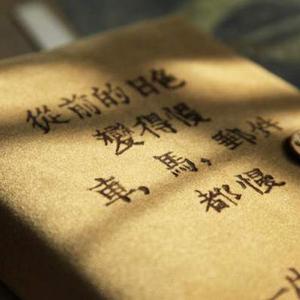 從前的日色
變得慢
車，馬，郵件
都慢
一生